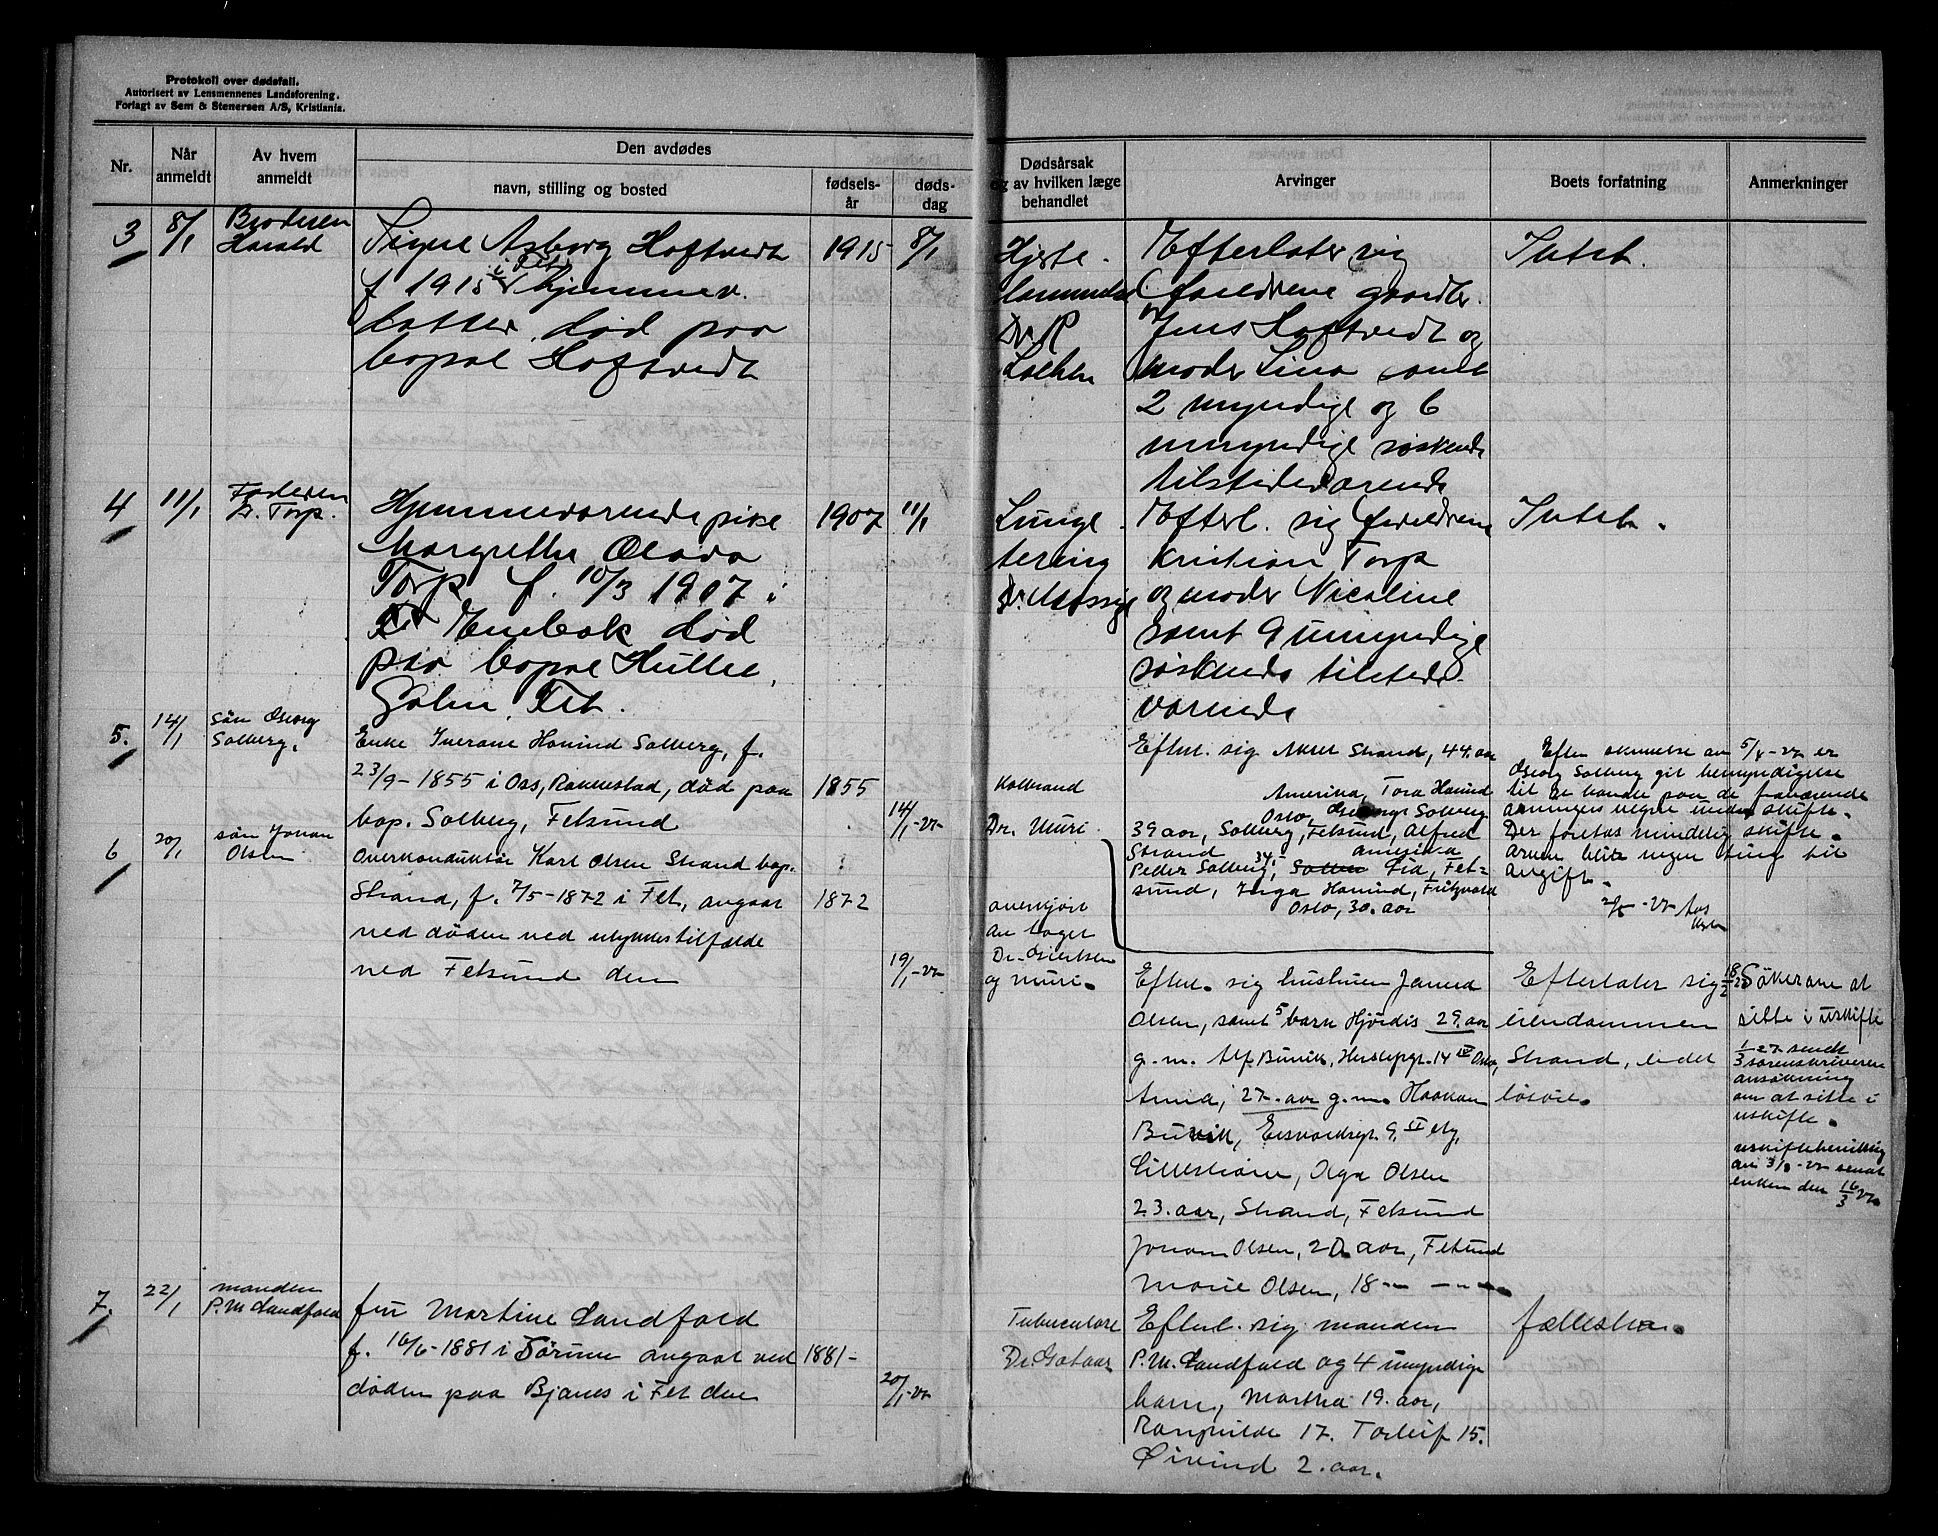 Protokoll over dødsfall.
Autorisert av Lensmennenes Landsforening.
Forlagt av Sem & Stenersen A/S, Kristiania.
Nr.
Når anmeldt
Av hvem anmeldt
Den avdødes
navn, stilling og bosted
fødsels-år
døds-dag
Dødsårsak
og av hvilken læge
behandlet
Arvinger
Boets forfatning
Anmerkninger
3
8/1
Broderen
Harald
Signe Asborg Hoftvedt
f 1915 i Fet, hjemmev.
datter, død paa
bopæl Hoftvedt
1915
8/1
Hjerte-
Dr.
Efterlater sig
forældrene gaardbr.
Jens Hoftvedt og
moder Lina samt
2 myndige og 6
umyndige søskende
tilstedeværende
Intet.
4
11/1
Faderen
K. Torp.
Hjemmeværende pike
Margrethe Olava
Torp f. 10/3 1907 i
Enebak død
paa bopæl Hullet,
Fet.
1907
11/1
Lunge-
tæring
Dr.
Efterl. sig forældrene
Kristian Torp
og moder Nicoline
samt 9 umyndige
søskende tilstede-
værende
Intet.
5.
14/1
søn Georg
Solberg.
Enke Iverane Hovind Solberg, f.
23/9-1855 i Os, Rakkestad, død paa
bop. Solberg, Fetsund
1855
14/1-27
Koldbrand
Dr. Muri.
Efterl. sig Strand, 44 aar
Amerika, Tora Hovind
Oslo, Georg Solberg
39 aar, Solberg, Fetsund, Alfred
Strand Amerika
Peder Solberg, 34, Lia, Fet-
sund, Hovind,
Oslo, 30. aar
Efter skrivelse av 5/4-27 er
Georg Solberg git bemyndigelse
til at handle paa de fraværende
arvingers vegne under skifte.
Der foretas mindelig skifte.
Arven blir ingen ting til
avgift.
6
20/1
søn Johan
Olsen
Overkonduktør Karl Olsen Strand bop.
Strand, f. 7/5-1872 i Fet, avgaat
ved døden ved ulykkestilfælde
ved Fetsund den
1872
19/1-27
overkjørt
av toget
Dr.
og Muri.
Efterl. sig hustruen
Olsen, samt 5 barn Hjørdis 29. aar
g.m. Alf Buvik, 14 IV Oslo,
27. aar g.m. Haakon
Buvik, 9.
Lillestrøm, Olga Olsen
23. aar, Strand, Fetsund
Johan Olsen, 20 aar, Fetsund
Marie Olsen, 18 — " —
Efterlater sig
eiendommen
Strand, endel
løsøre.
Søker om at
sitte i uskifte
sendt
sorenskriveren
ansøkning
om at sitte i
uskifte.
uskiftebevilling
av 3/3-27 sendt
enken den 16/3 27
7.
22/1
manden
P.M. Sandfald
fru Martine Sandfald
f. 16/6-1881 i Sørum avgaat ved
døden paa Bjanes i Fet den
1881-
20/1-27
Tuberculose
Dr.
Efterl. sig manden
P.M. Sandfald og 4 umyndige
barn, Martha 19. aar,
Rangnhilde 17. Torleif 15.
Øivind 2. aar.
fællesbo.